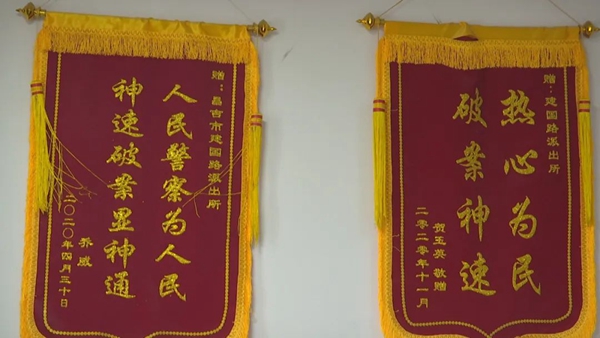 赠：昌吉市建国路派出所
人民警察为人民
神速破案显神通
乔威
二〇二〇年四月三十日
赠：建国路派出所
热心为民
破案神速
贺玉英 敬赠
二零二零年十一月